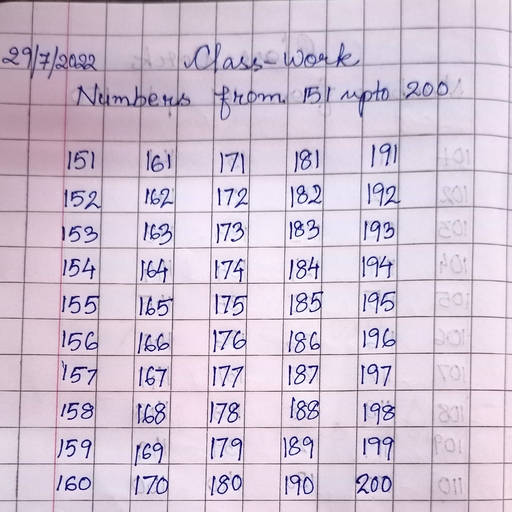 29/7/2022 Class-Work
Numbers from 151 upto 200
151 161 171 181 191
152 162 172 182 192
153 163 173 183 193
154 164 174 184 194
155 165 175 185 195
156 166 176 186 196
157 167 177 187 197
158 168 178 188 198
159 169 179 189 199
160 170 180 190 200